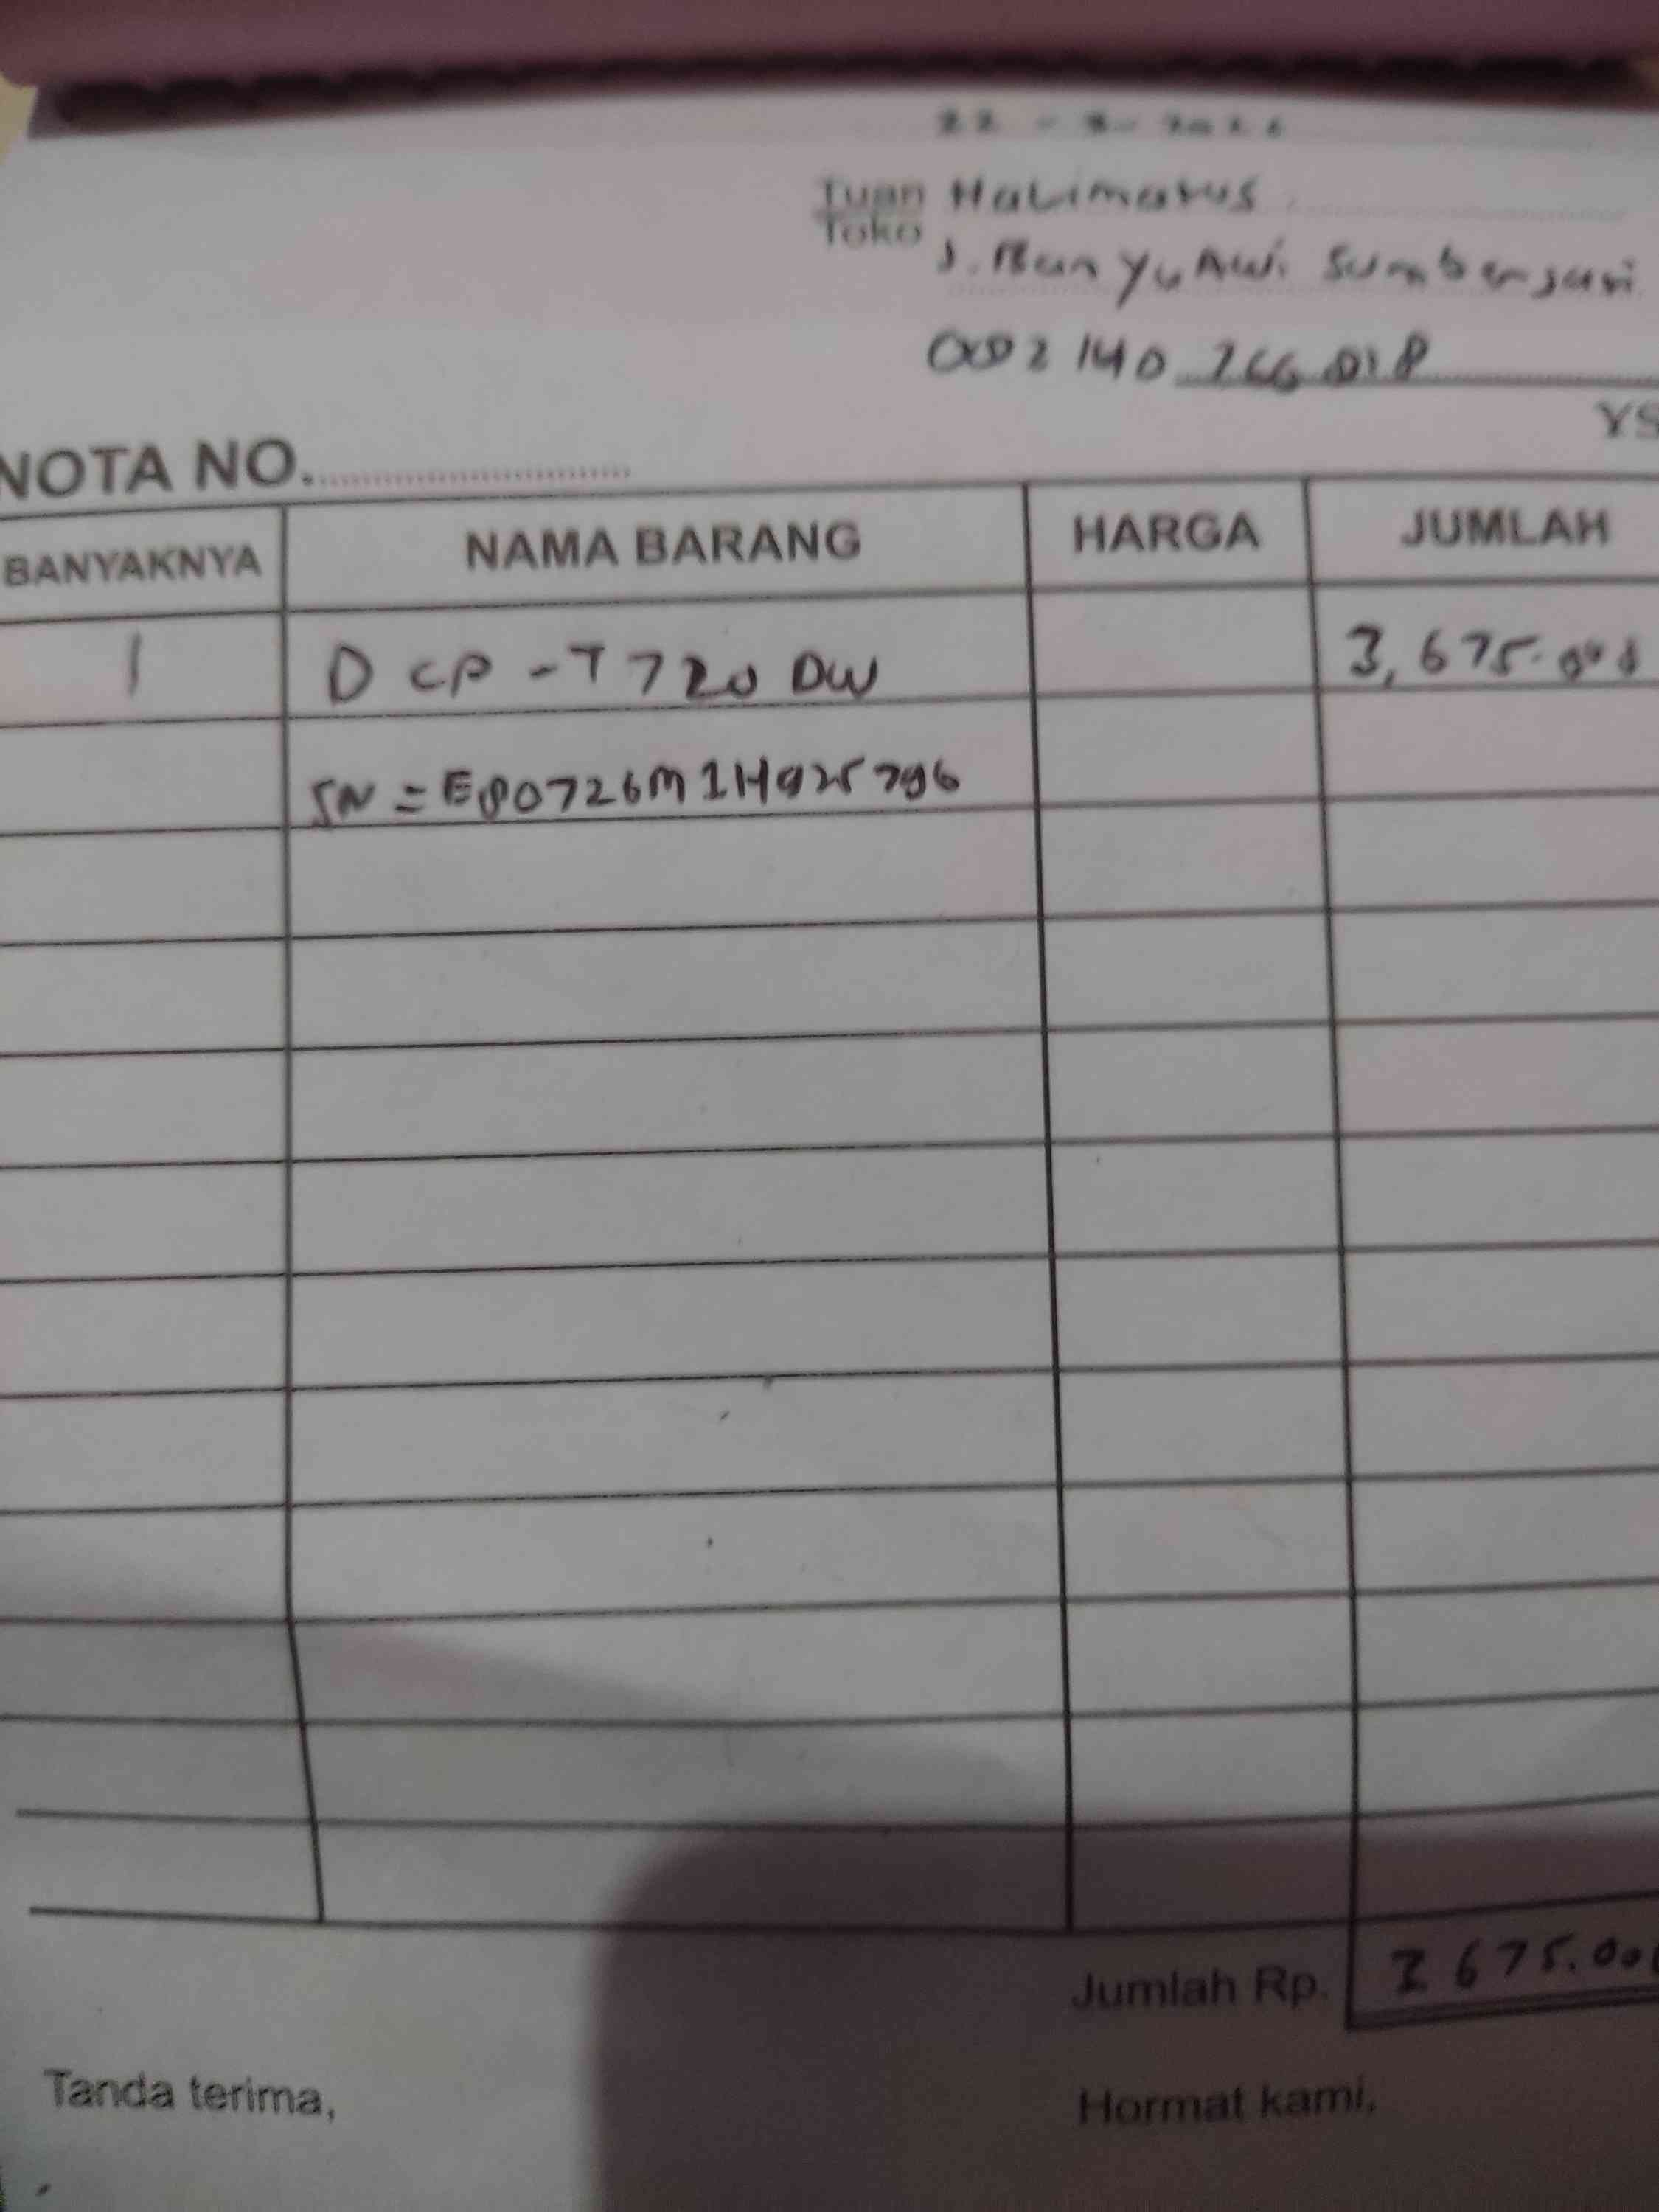 Tuan Halimatus
Toko
J. Banyu Awi Sumbersari
YS
NOTA NO.
BANYAKNYA NAMA BARANG HARGA JUMLAH
1 DCP-T720DW 3,675.000
SN = E80726M1H925796
Jumlah Rp. 3675.000
Tanda terima, Hormat kami,